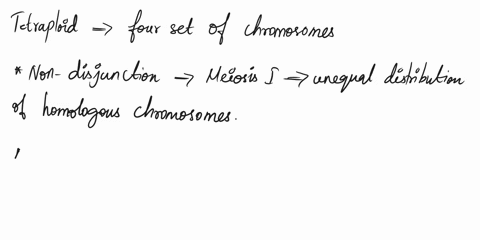 Tetraploid → four set of chromosomes
* Non-disjunction → Meiosis I → unequal distribution
of homologous chromosomes.